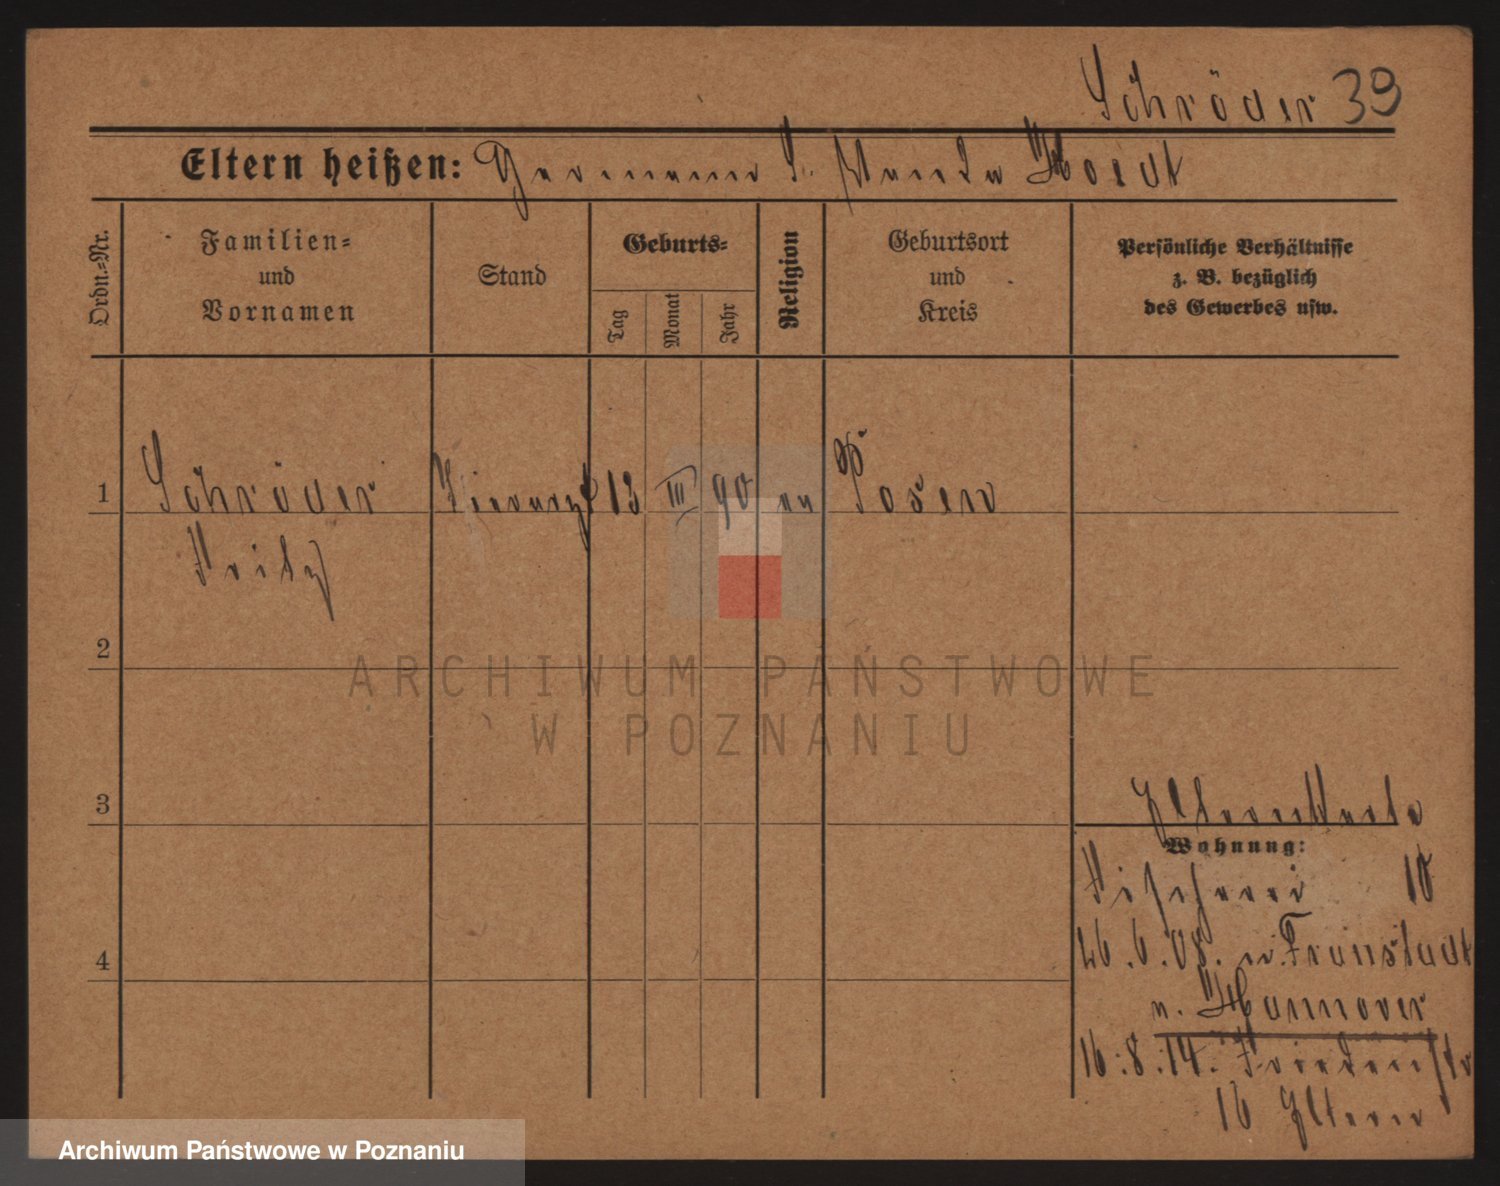 Schröder 39
Eltern heißen: Hermann S. Wanda Hoedt
Ordn.=Nr.
Familien=
und
Vornamen
Stand
Geburts=
Tag
Monat
Jahr
Religion
Geburtsort
und
Kreis
Persönliche Verhältnisse
z. B. bezüglich
des Gewerbes usw.
1 Schröder Tierarzt 13 III 90 Posen
Fritz
2
3
4
Elternkarte
Wohnung:
Fischerei 10
26.6.08. Fraustadt
n. Hannover
16.8.14. Friedenstr
16 Eltern
ARCHIWUM PAŃSTWOWE
W POZNANIU
Archiwum Państwowe w Poznaniu